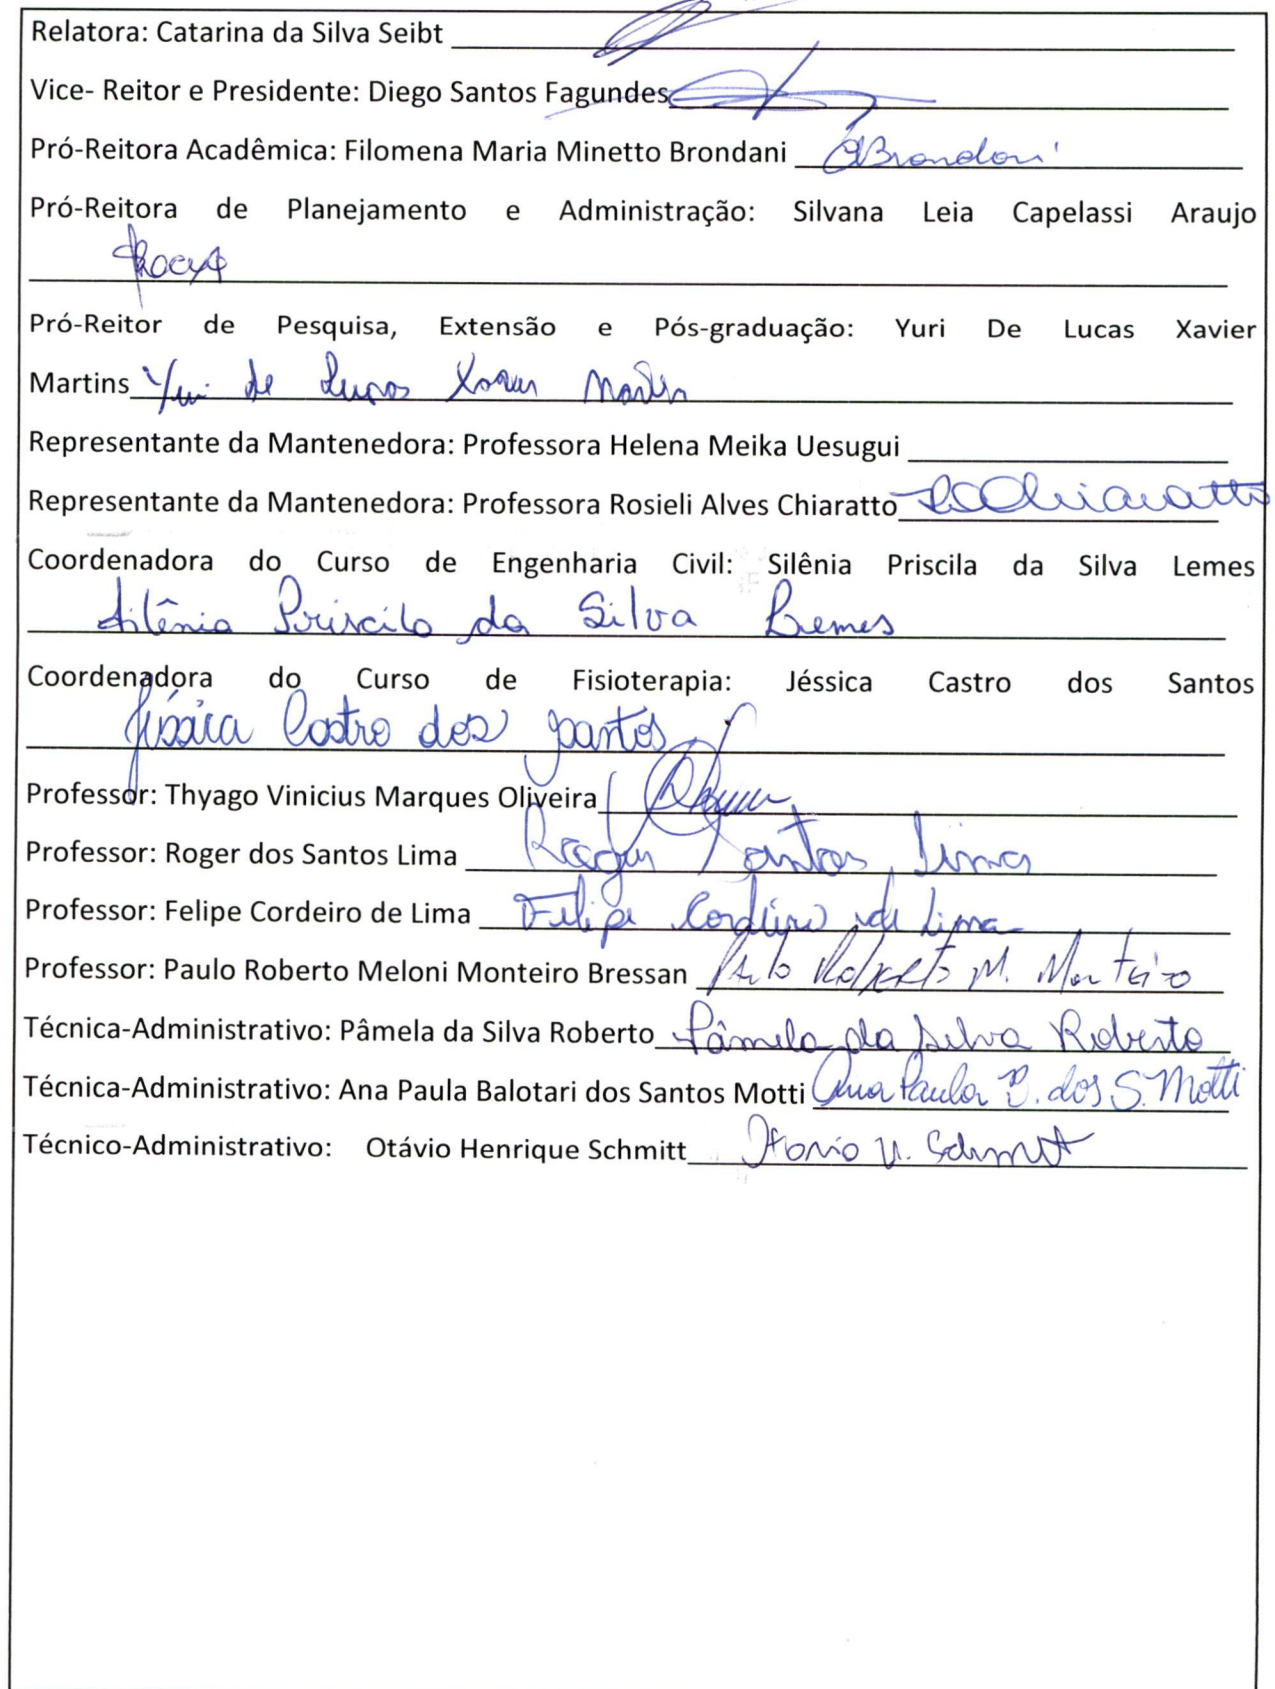 Relatora: Catarina da Silva Seibt
Vice- Reitor e Presidente: Diego Santos Fagundes
Pró-Reitora Acadêmica: Filomena Maria Minetto Brondani Brondani
Pró-Reitora de Planejamento e Administração: Silvana Leia Capelassi Araujo
Pró-Reitor de Pesquisa, Extensão e Pós-graduação: Yuri De Lucas Xavier
Martins Yuri de Lucas Xavier Martins
Representante da Mantenedora: Professora Helena Meika Uesugui
Representante da Mantenedora: Professora Rosieli Alves Chiaratto Chiaratto
Coordenadora do Curso de Engenharia Civil: Silênia Priscila da Silva Lemes
Silênia Priscila da Silva Lemes
Coordenadora do Curso de Fisioterapia: Jéssica Castro dos Santos
Jéssica Castro dos Santos
Professor: Thyago Vinicius Marques Oliveira
Professor: Roger dos Santos Lima Roger Santos Lima
Professor: Felipe Cordeiro de Lima Felipe Cordeiro de Lima
Professor: Paulo Roberto Meloni Monteiro Bressan Paulo Roberto M. Monteiro
Técnica-Administrativo: Pâmela da Silva Roberto Pâmela da Silva Roberto
Técnica-Administrativo: Ana Paula Balotari dos Santos Motti Ana Paula B. dos S. Motti
Técnico-Administrativo: Otávio Henrique Schmitt Otavio H. Schmitt